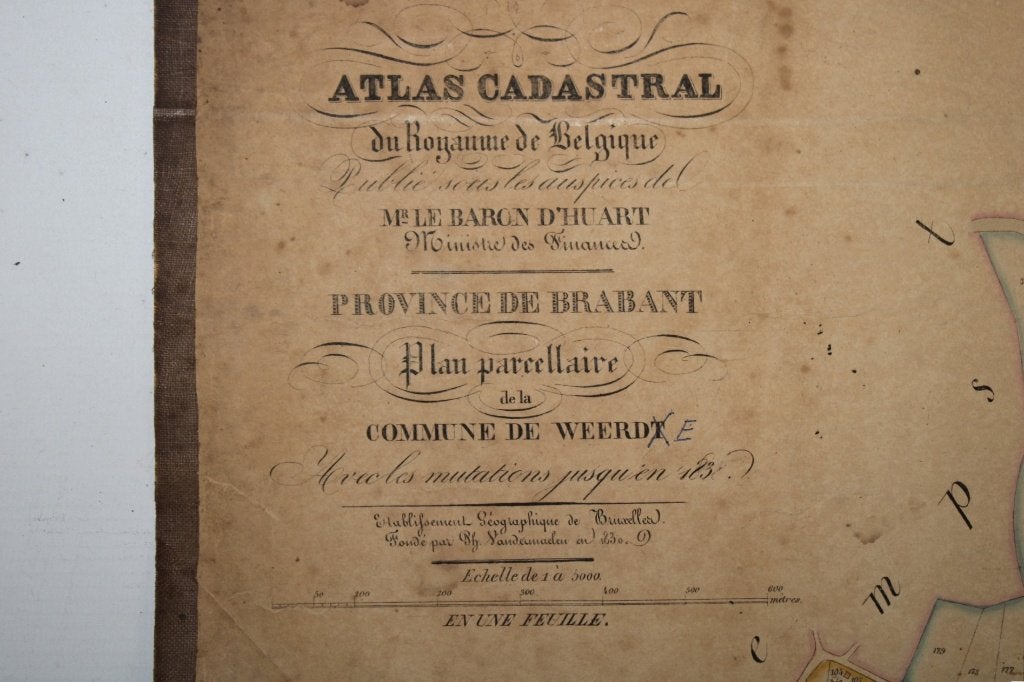 ATLAS CADASTRAL
du Royaume de Belgique
Publié sous les auspices de
MR. LE BARON D'HUART
Ministre des Finances.
PROVINCE DE BRABANT
Plan parcellaire
de la
COMMUNE DE WEERDT E
Avec les mutations jusqu'en 183
Etablissement Géographique de Bruxelles.
Fondé par Ph. Vandermaelen en 1830.
Echelle de 1 à 5000.
50 100 200 300 400 500 600
mètres.
EN UNE FEUILLE.
e m p s t
179 173 172